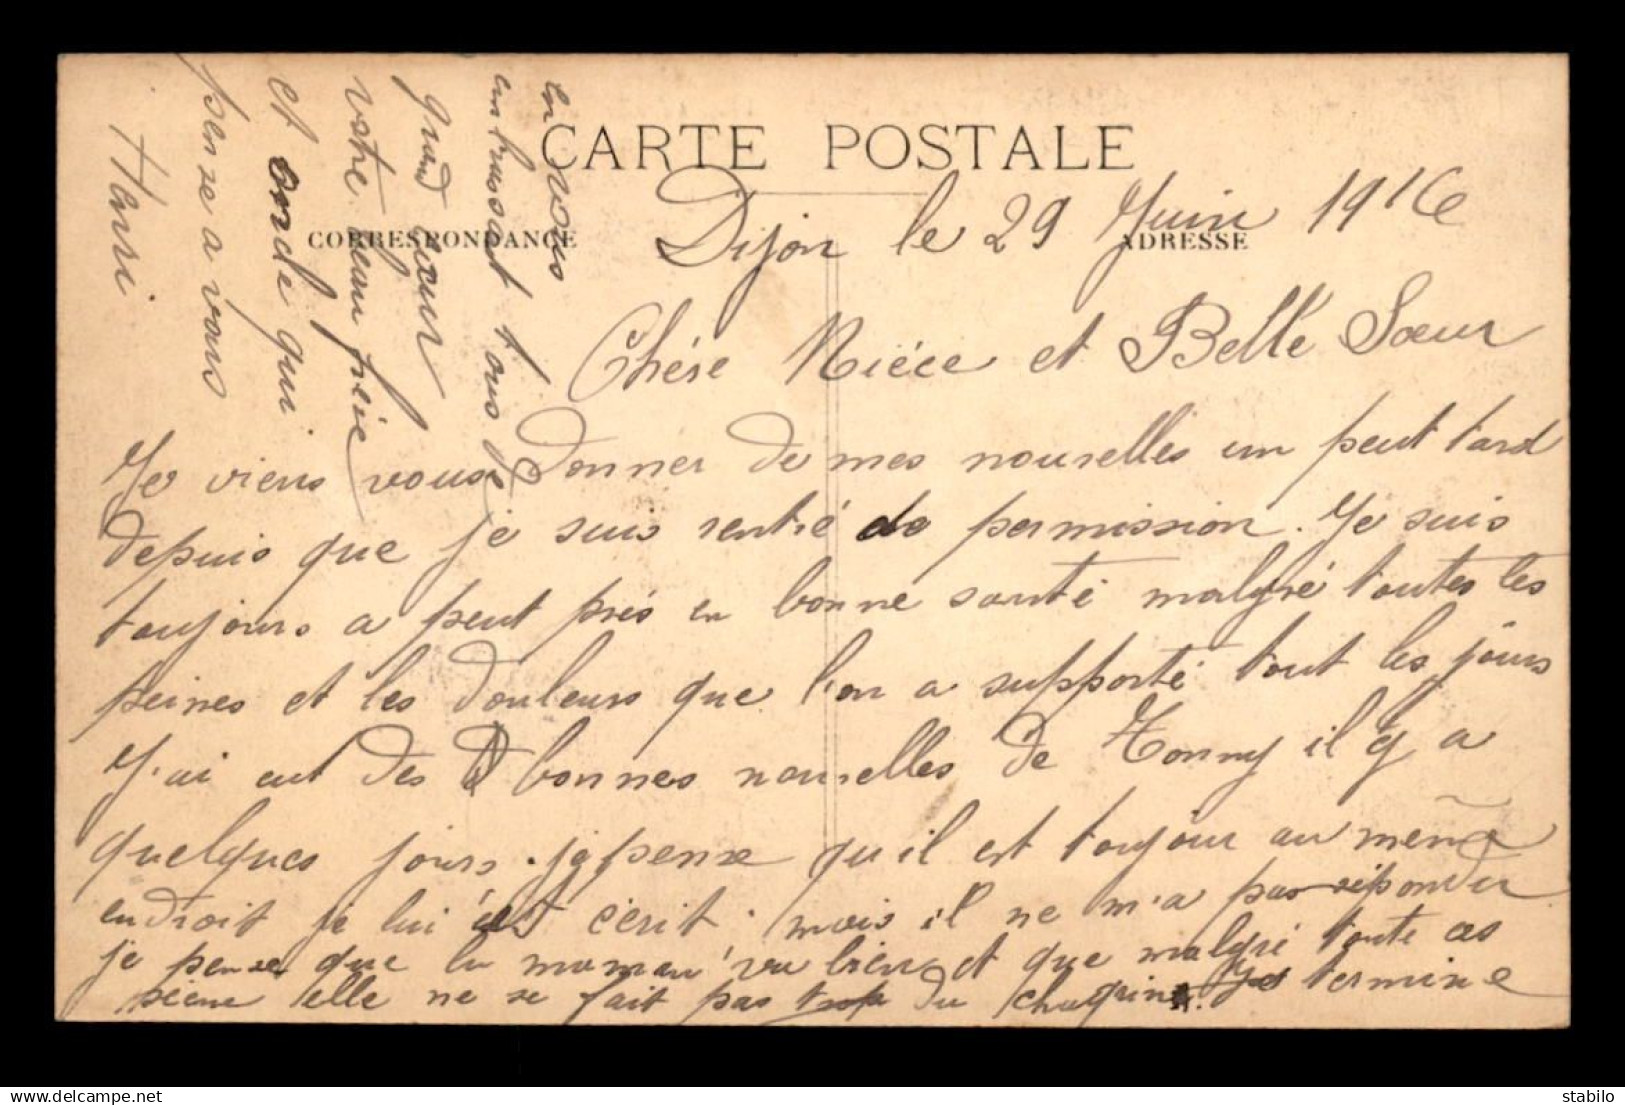 CARTE POSTALE
CORRESPONDANCE
ADRESSE
Dijon le 29 Juin 1916
Chére Niéce et Belle Sœur
Je viens vous donner de mes nouvelles un peut tard
depuis que je suis rentré de permission. Je suis
toujours a peut prés en bonne santé malgré toutes les
peines et les douleurs que l'on a supporté tout les jours
J'ai eut des bonnes nouvelles de Tonny il y a
quelques jours. je pense qu'il est toujour au même
endroit je lui ést écrit. mais il ne m'a pas réponder
je pense que la maman va bien et que malgré toute ces
peine elle ne se fait pas trop du chagrin. Je termine
en vous
embrassant tous de
grand cœur
votre beau frére
et oncle qui
pense a vous
Henri
www.delcampe.net
stabilo